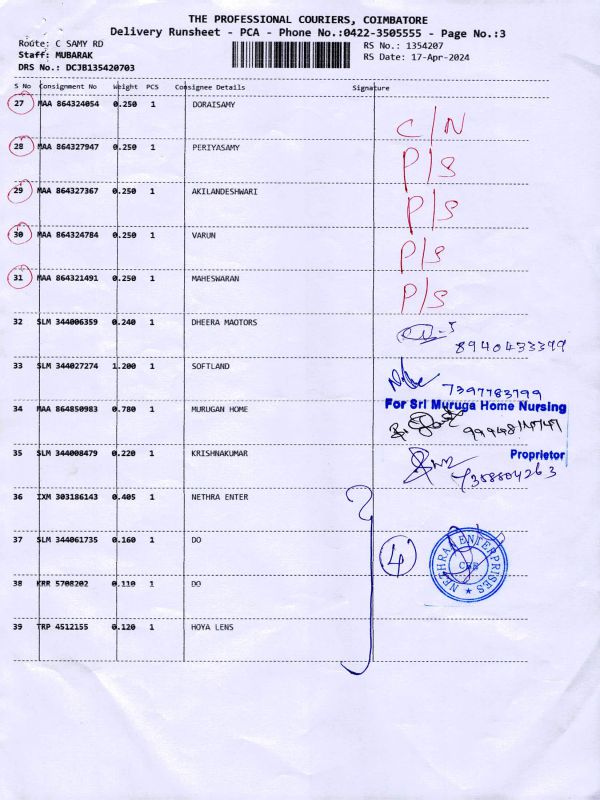 THE PROFESSIONAL COURIERS, COIMBATORE
Delivery Runsheet - PCA - Phone No.:0422-3505555 - Page No.:3
Route: C SAMY RD
RS No.: 1354207
Staff: MUBARAK
RS Date: 17-Apr-2024
DRS No.: DCJB135420703
S No Consignment No Weight PCS Consignee Details Signature
27 MAA 864324054 0.250 1 DORAISAMY
C/N
28 MAA 864327947 0.250 1 PERIYASAMY
P/S
29 MAA 864327367 0.250 1 AKILANDESHWARI
P/S
30 MAA 864324784 0.250 1 VARUN
P/S
31 MAA 864321491 0.250 1 MAHESWARAN
P/S
32 SLM 344006359 0.240 1 DHEERA MAOTORS
8940433379
33 SLM 344027274 1.200 1 SOFTLAND
7397783799
For Sri Muruga Home Nursing
34 MAA 864850983 0.780 1 MURUGAN HOME
35 SLM 344008479 0.220 1 KRISHNAKUMAR
Proprietor
7358804263
36 IXM 303186143 0.405 1 NETHRA ENTER
37 SLM 344061735 0.160 1 DO
4
NETHRA ENTERPRISES
CBE
38 KRR 5708202 0.110 1 DO
39 TRP 4512155 0.120 1 HOYA LENS